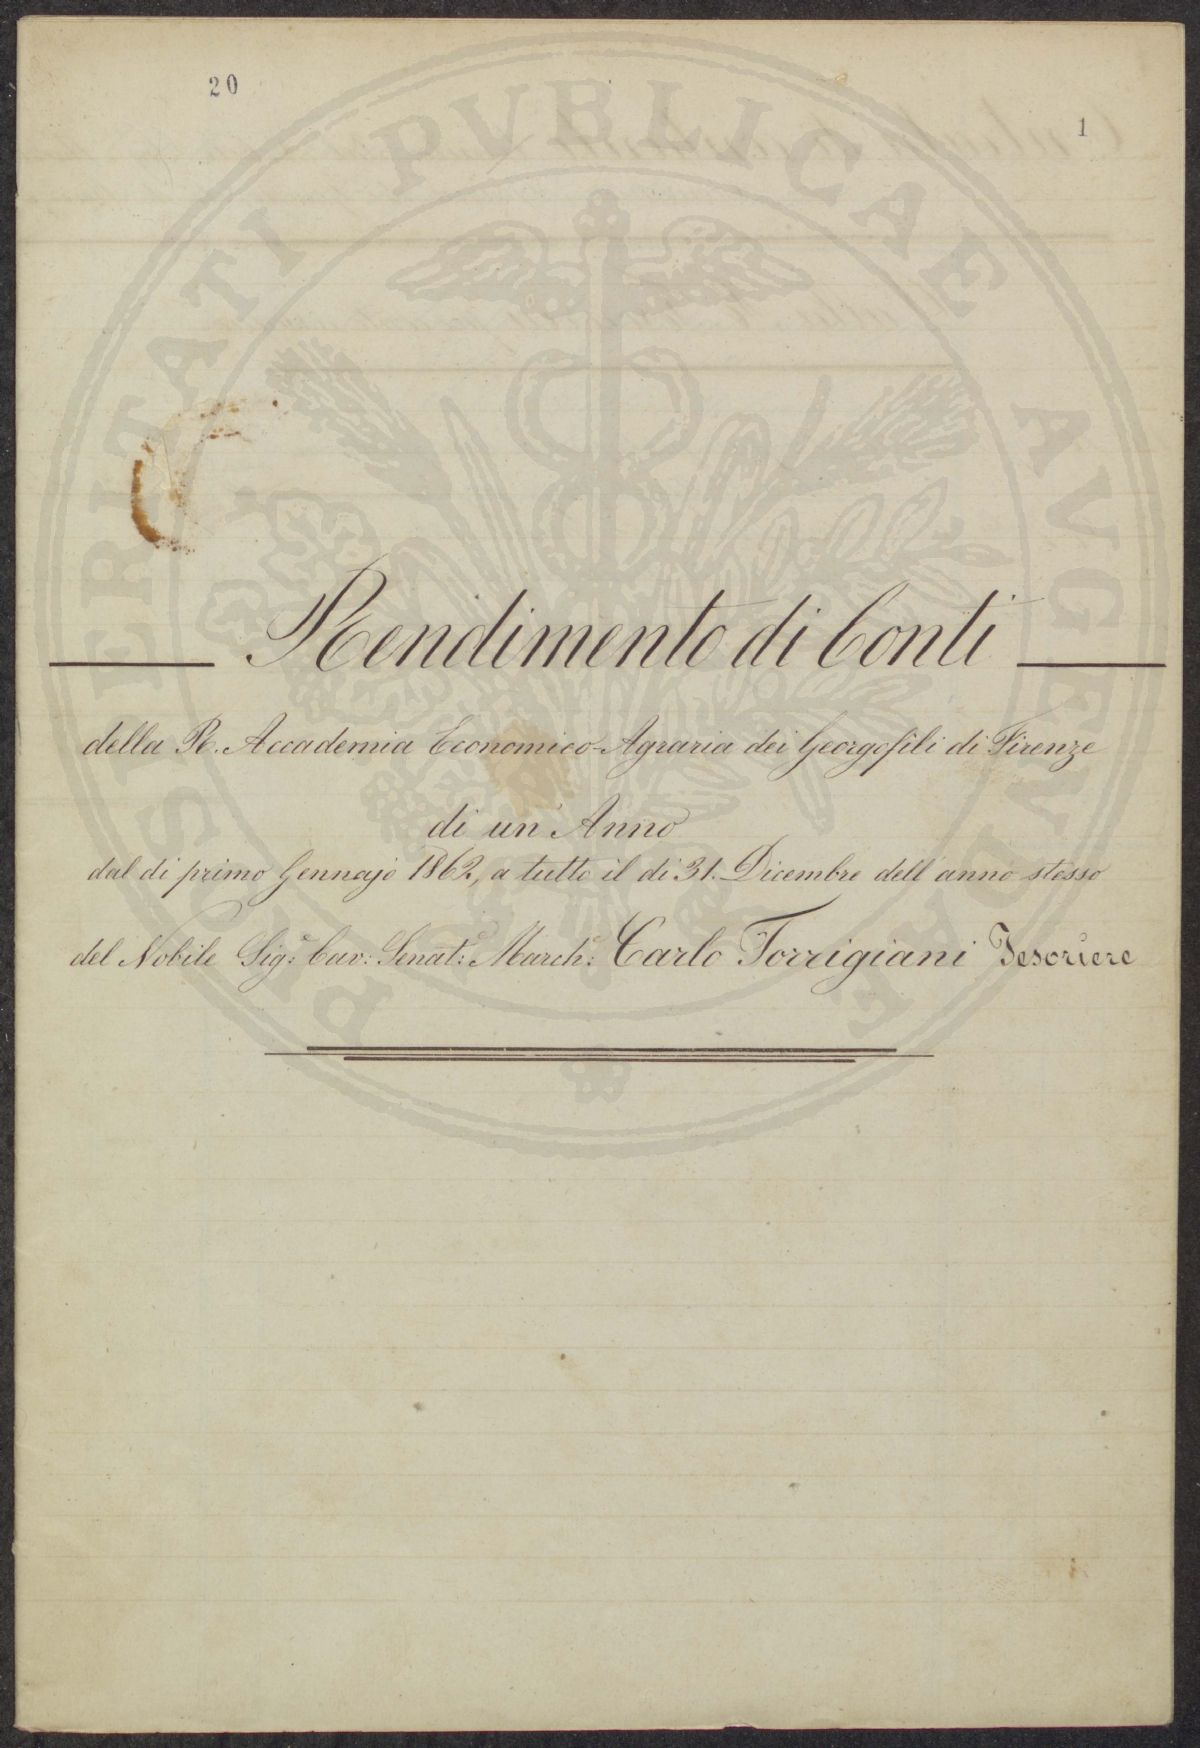 20
1
PROSPERITATI PVBLICAE AVGENDAE
Rendimento di Conti
della R. Accademia Economico-Agraria dei Georgofili di Firenze
di un Anno
dal di primo Gennajo 1862, a tutto il di 31. Dicembre dell'anno stesso
del Nobile Sig:e Cav: Senat:e March:e Carlo Torrigiani Tesoriere